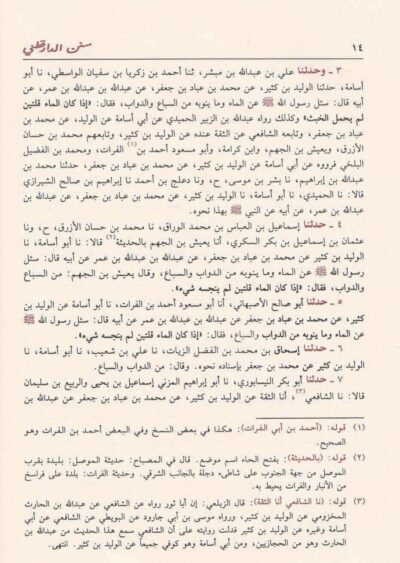 ١٤ سنن الدارقطني
٣ ـ وحدثنا علي بن عبدالله بن مبشر، ثنا أحمد بن زكريا بن سفيان الواسطي، نا أبو
أسامة، حدثنا الوليد بن كثير، عن محمد بن عباد بن جعفر، عن عبدالله بن عبدالله بن عمر، عن
أبيه قال: سئل رسول الله ﷺ عن الماء وما ينوبه من السباع والدواب، فقال: «إذا كان الماء قلتين
لم يحمل الخبث» وكذلك رواه عبدالله بن الزبير الحميدي عن أبي أسامة عن الوليد، عن محمد
بن عباد بن جعفر، وتابعه الشافعي عن الثقة عنده عن الوليد بن كثير، وتابعهم محمد بن حسان
الأزرق، ويعيش بن الجهم، وابن كرامة، وأبو مسعود أحمد بن (١) الفرات، ومحمد بن الفضيل
البلخي فرووه عن أبي أسامة عن الوليد بن كثير، عن محمد بن عباد بن جعفر، حدثنا محمد بن
عبدالله بن إبراهيم، نا بشر بن موسى، ح، ونا دعلج بن أحمد نا إبراهيم بن صالح الشيرازي
قالا: نا الحميدي، نا أبو أسامة، نا الوليد بن كثير، عن محمد بن عباد بن جعفر، عن عبدالله بن
عبدالله بن عمر، عن أبيه عن النبي ﷺ بهذا نحوه.
٤ ـ حدثنا إسماعيل بن العباس بن محمد الوراق، نا محمد بن حسان الأزرق، ح، ونا
عثمان بن إسماعيل بن بكر السكري، أنا يعيش بن الجهم بالحديثة(٢) قالا: نا أبو أسامة، نا
الوليد بن كثير عن محمد بن عباد بن جعفر، عن عبدالله بن عبدالله بن عمر عن أبيه قال: سئل
رسول الله ﷺ عن الماء وما ينوبه من الدواب والسباع، وقال يعيش بن الجهم: من السباع
والدواب، فقال: «إذا كان الماء قلتين لم ينجسه شيء».
٥ ـ حدثنا أبو صالح الأصبهاني، أنا أبو مسعود أحمد بن الفرات، نا أبو أسامة عن الوليد بن
كثير، عن محمد بن عباد بن جعفر عن عبدالله بن عبدالله بن عمر عن أبيه قال: سئل رسول الله ﷺ
عن الماء وما ينوبه من الدواب والسباع، فقال: «إذا كان الماء قلتين لم ينجسه شيء».
٦ ـ حدثنا إسحاق بن محمد بن الفضل الزيات، نا علي بن شعيب، نا أبو أسامة، نا
الوليد بن كثير عن محمد بن جعفر بإسناده نحوه. وقال: من الدواب والسباع.
٧ ـ حدثنا أبو بكر النيسابوري، نا أبو إبراهيم المزني إسماعيل بن يحيى والربيع بن سليمان
قالا: نا الشافعي(٣)، أنا الثقة عن الوليد بن كثير، عن محمد بن عباد بن جعفر عن عبدالله بن
(١) قوله: (أحمد بن أبي الفرات): هكذا في بعض النسخ وفي البعض أحمد بن الفرات وهو
الصحيح.
(٢) قوله: (بالحديثة): بفتح الحاء اسم موضع. قال في المصباح: حديثة الموصل: بليدة بقرب
الموصل من جهة الجنوب على شاطىء دجلة بالجانب الشرقي. وحديثة الفرات: بلدة على فراسخ
من الأنبار والفرات يحيط به.
(٣) قوله: (نا الشافعي أنا الثقة): قال الزيلعي: إن أبا ثور رواه عن الشافعي عن عبدالله بن الحارث
المخزومي عن الوليد بن كثير، ورواه موسى بن أبي جارود عن البويطي عن الشافعي عن أبي
أسامة وغيره عن الوليد بن كثير فدلت روايته على أن الشافعي سمع هذا الحديث من عبدالله بن
الحارث وهو من الحجازيين، ومن أبي أسامة وهو كوفي جميعاً عن الوليد بن كثير. انتهى.